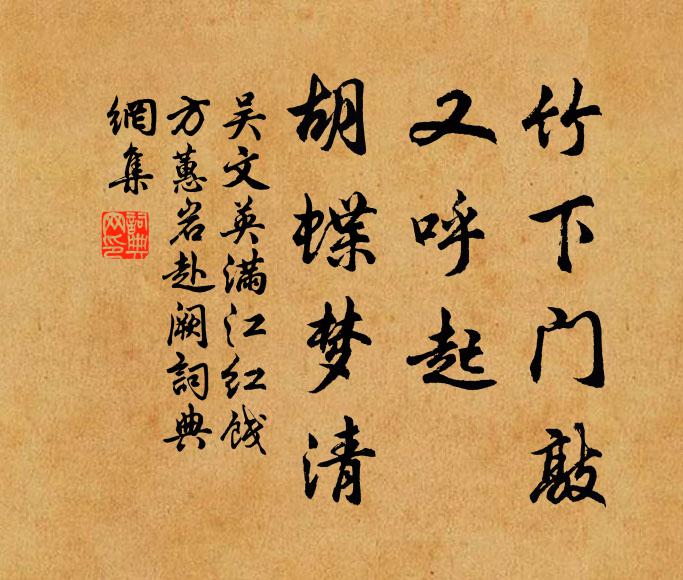 竹下门敲
又呼起
胡蝶梦清
吴文英满江红饯
方蕙岩赴阙詞典
網集
詞典
网印